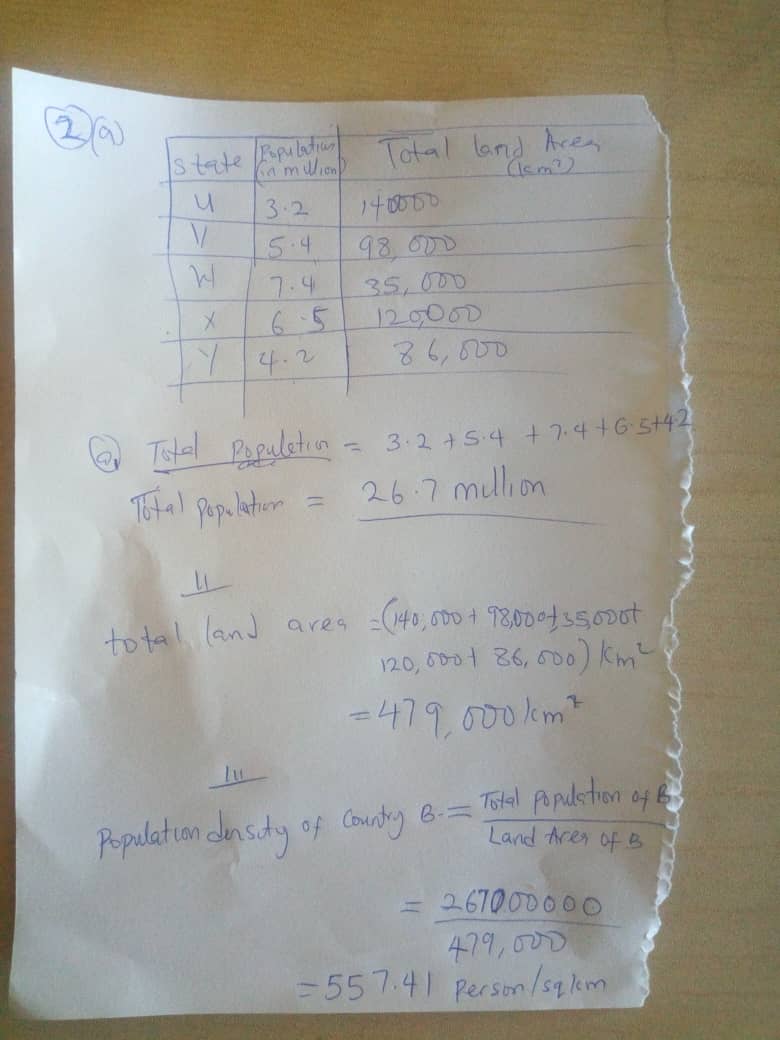 2(a)
State Population (in million) Total land Area (km²)
U 3.2 140000
V 5.4 98,000
W 7.4 35,000
X 6.5 120,000
Y 4.2 86,000
a, Total Population = 3.2 + 5.4 + 7.4 + 6.5 + 4.2
Total population = 26.7 million
II
total land area = (140,000 + 98,000 + 35,000 +
120,000 + 86,000) km²
= 479,000 km²
III
Population density of Country B = Total population of B
Land Area of B
= 267000000
479,000
= 557.41 Person/sqkm